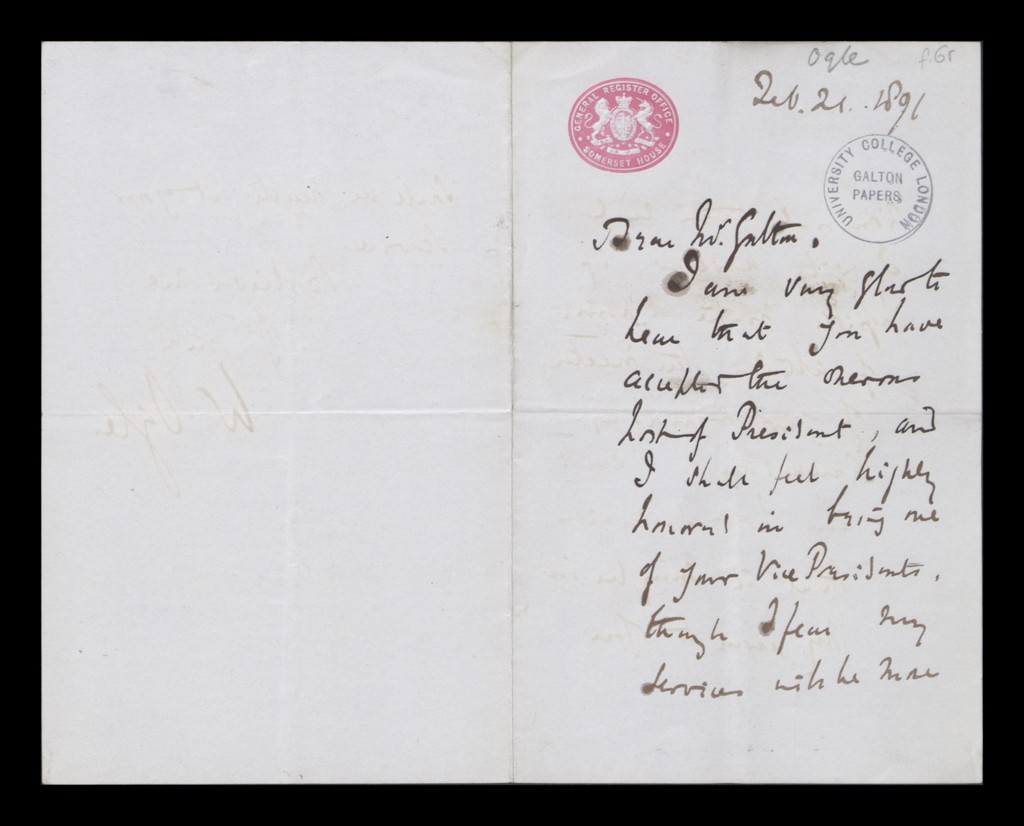 Ogle
f.6r
Feb. 21. 1891
GENERAL REGISTER OFFICE
SOMERSET HOUSE
UNIVERSITY COLLEGE LONDON
GALTON
PAPERS
Dear Mr. Galton.
I am very glad to
hear that you have
accepted the onerous
post of President, and
I shall feel highly
honored in being one
of your Vice Presidents,
though I fear my
services will be more
W. Ogle